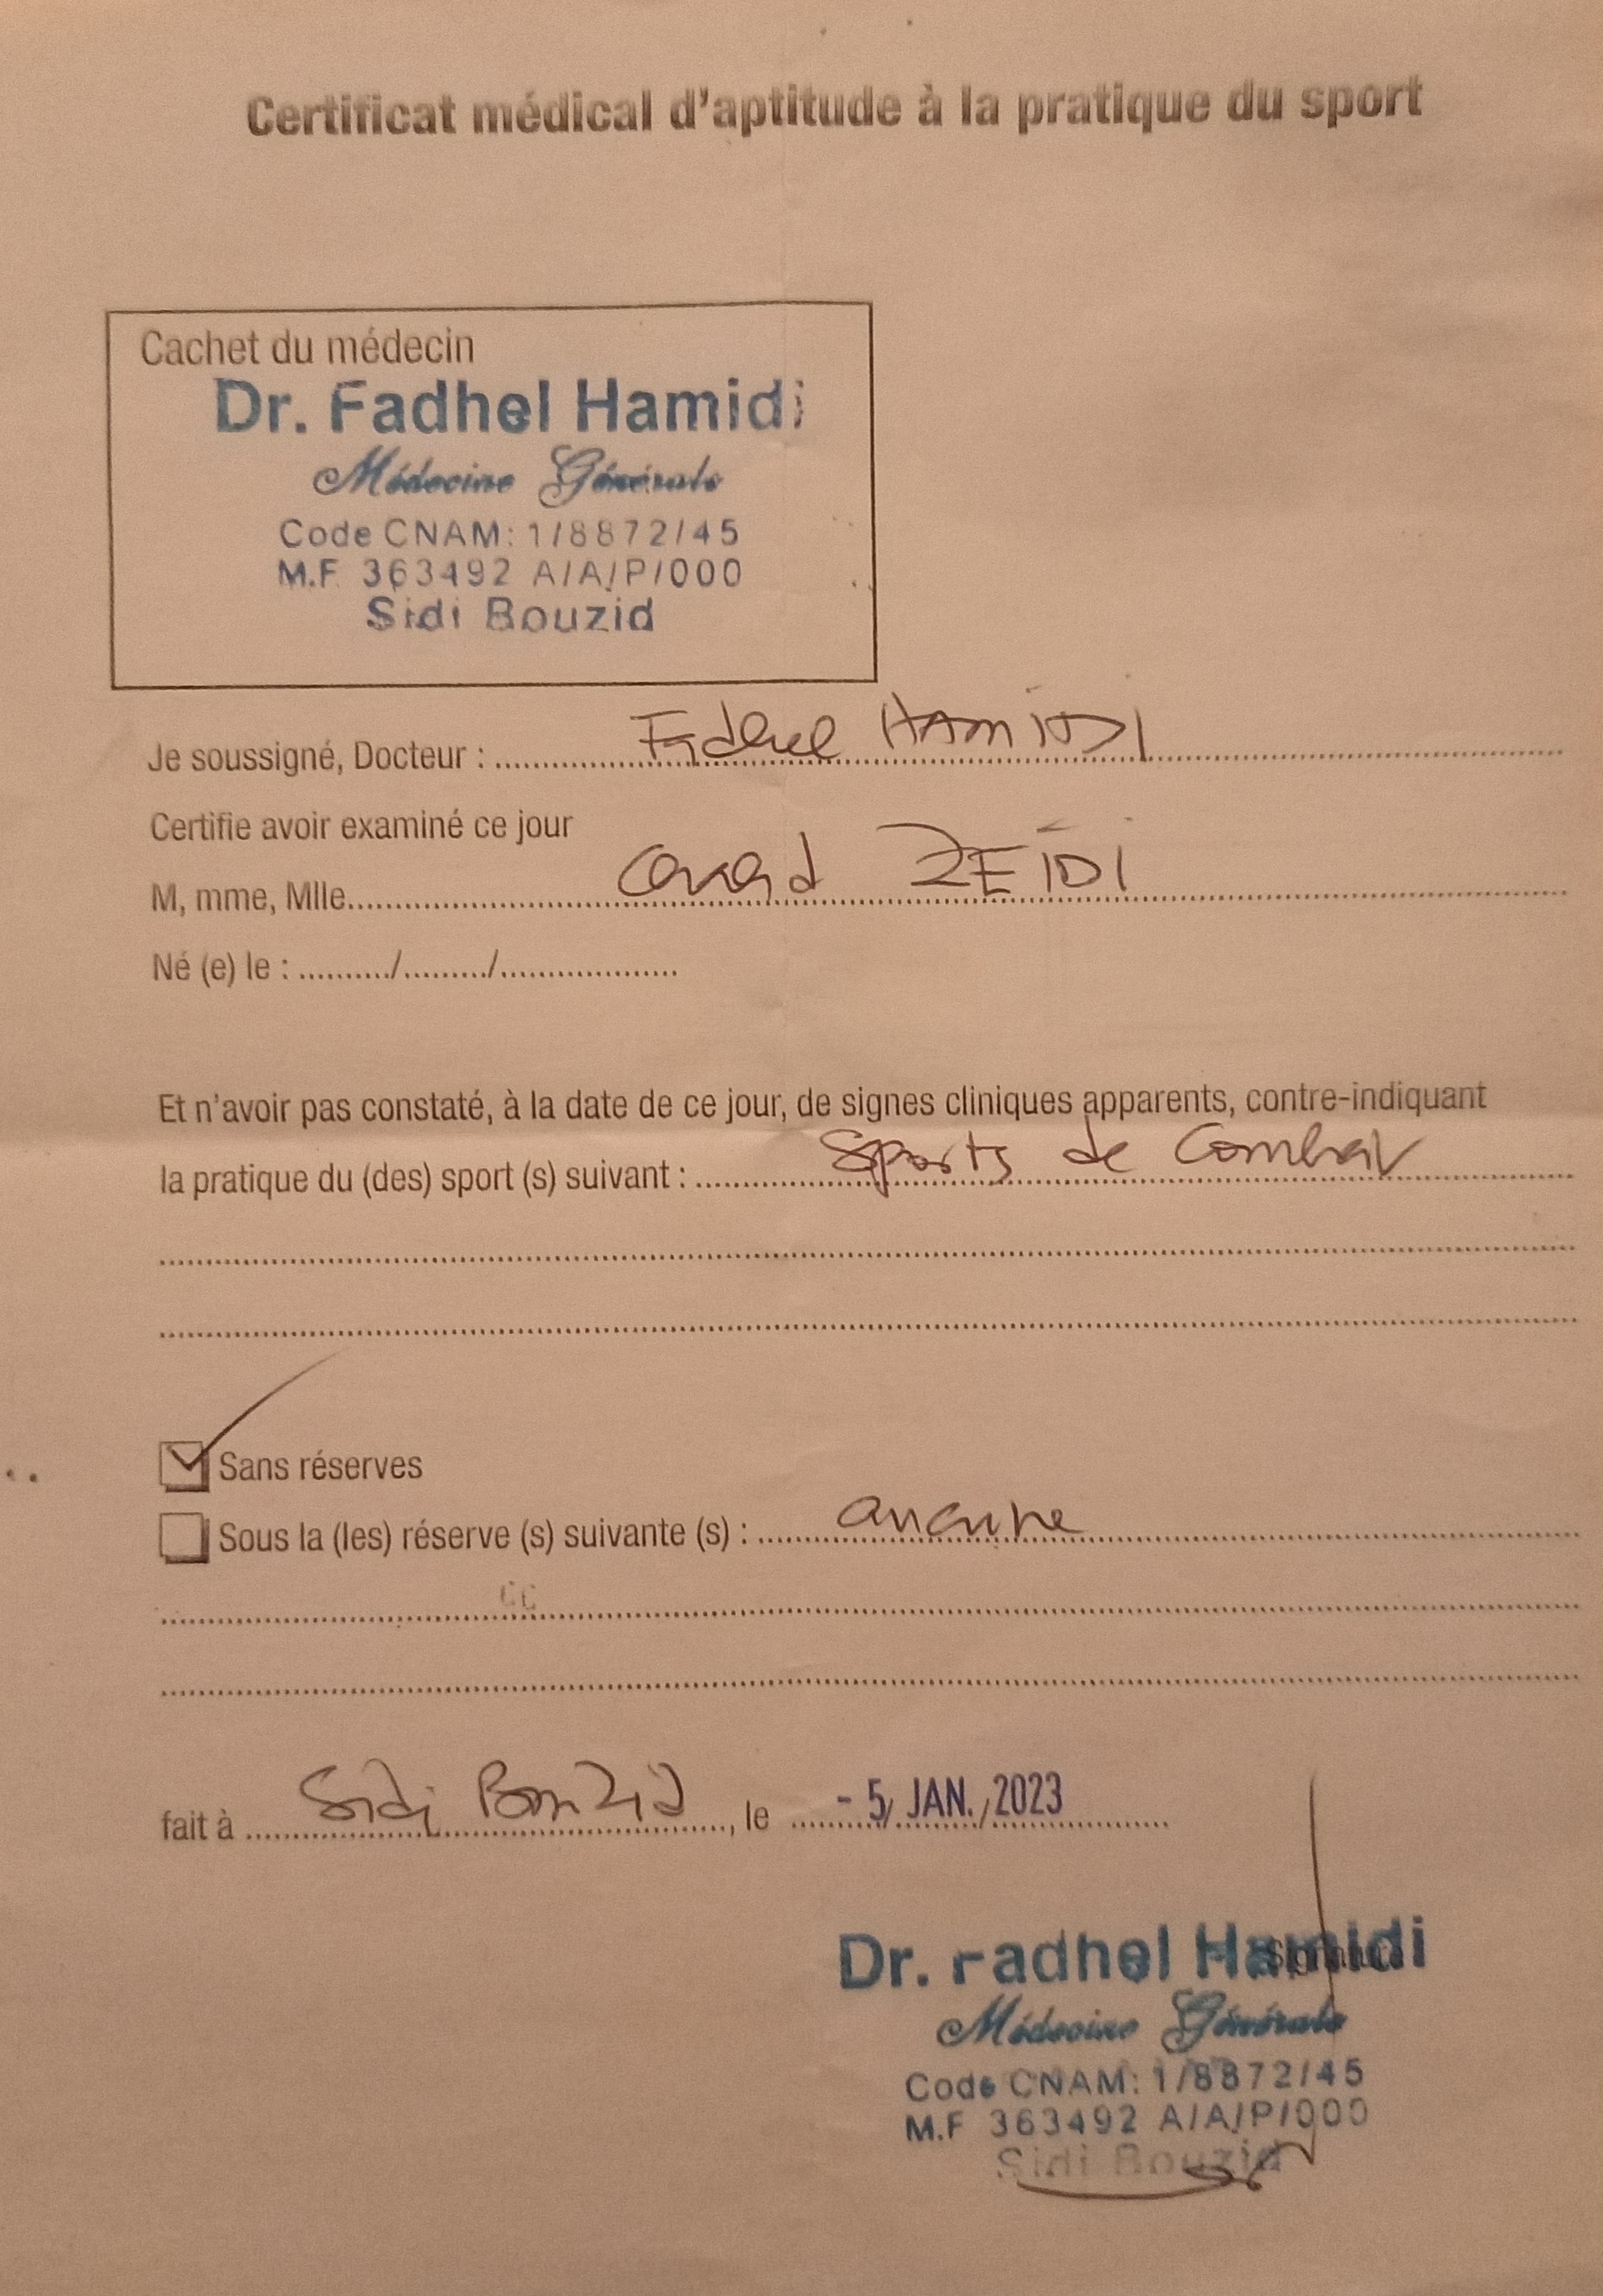 Certificat médical d'aptitude à la pratique du sport
Cachet du médecin
Dr. Fadhel Hamidi
Médecine Générale
Code CNAM: 1/8872/45
M.F. 363492 A/A/P/000
Sidi Bouzid
Je soussigné, Docteur : Fadhel HAMIDI
Certifie avoir examiné ce jour
M, mme, Mlle ZEIDI
Né (e) le : ........../........./...................
Et n'avoir pas constaté, à la date de ce jour, de signes cliniques apparents, contre-indiquant
la pratique du (des) sport (s) suivant : Sports de Combat
Sans réserves
Sous la (les) réserve (s) suivante (s) : aucune
fait à Sidi Bouzid, le - 5/ JAN./2023
Dr. Fadhel Hamidi
Médecine Générale
Code CNAM: 1/8872/45
M.F 363492 A/A/P/000
Sidi Bouzid